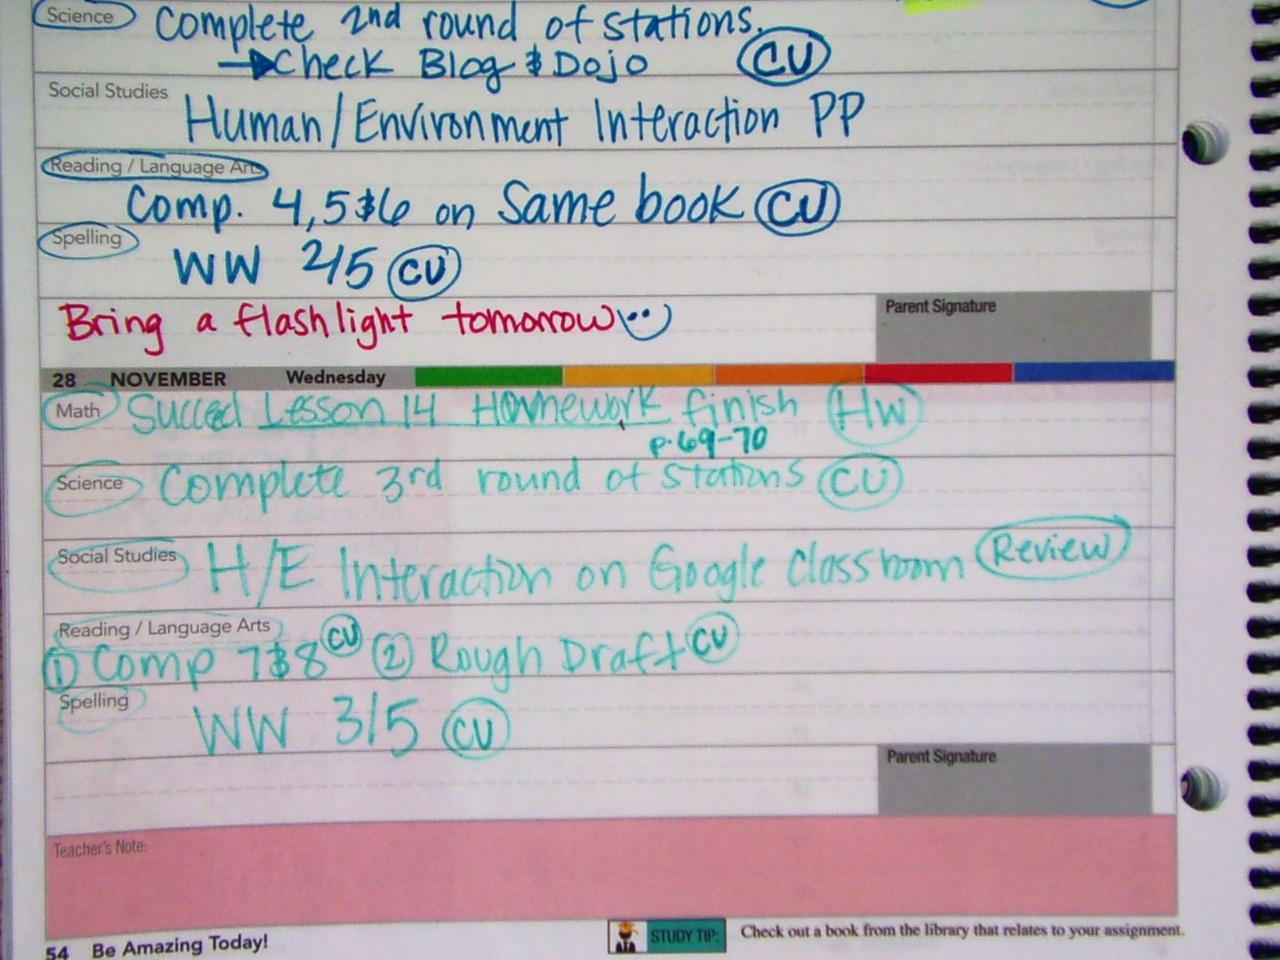 Science Complete 2nd round of stations.
→Check Blog & Dojo CU
Social Studies Human/Environment Interaction PP
Reading / Language Arts
Comp. 4,5&6 on Same book CU
Spelling WW 2/5 CU
Bring a flashlight tomorrow
Parent Signature
28 NOVEMBER Wednesday
Math Succed Lesson 14 Homework finish HW
p.69-70
Science Complete 3rd round of stations CU
Social Studies H/E Interaction on Google Classroom Review
Reading / Language Arts
① Comp 7&8 CU ② Rough Draft CU
Spelling WW 3/5 CU
Parent Signature
Teacher's Note:
54 Be Amazing Today!
STUDY TIP: Check out a book from the library that relates to your assignment.